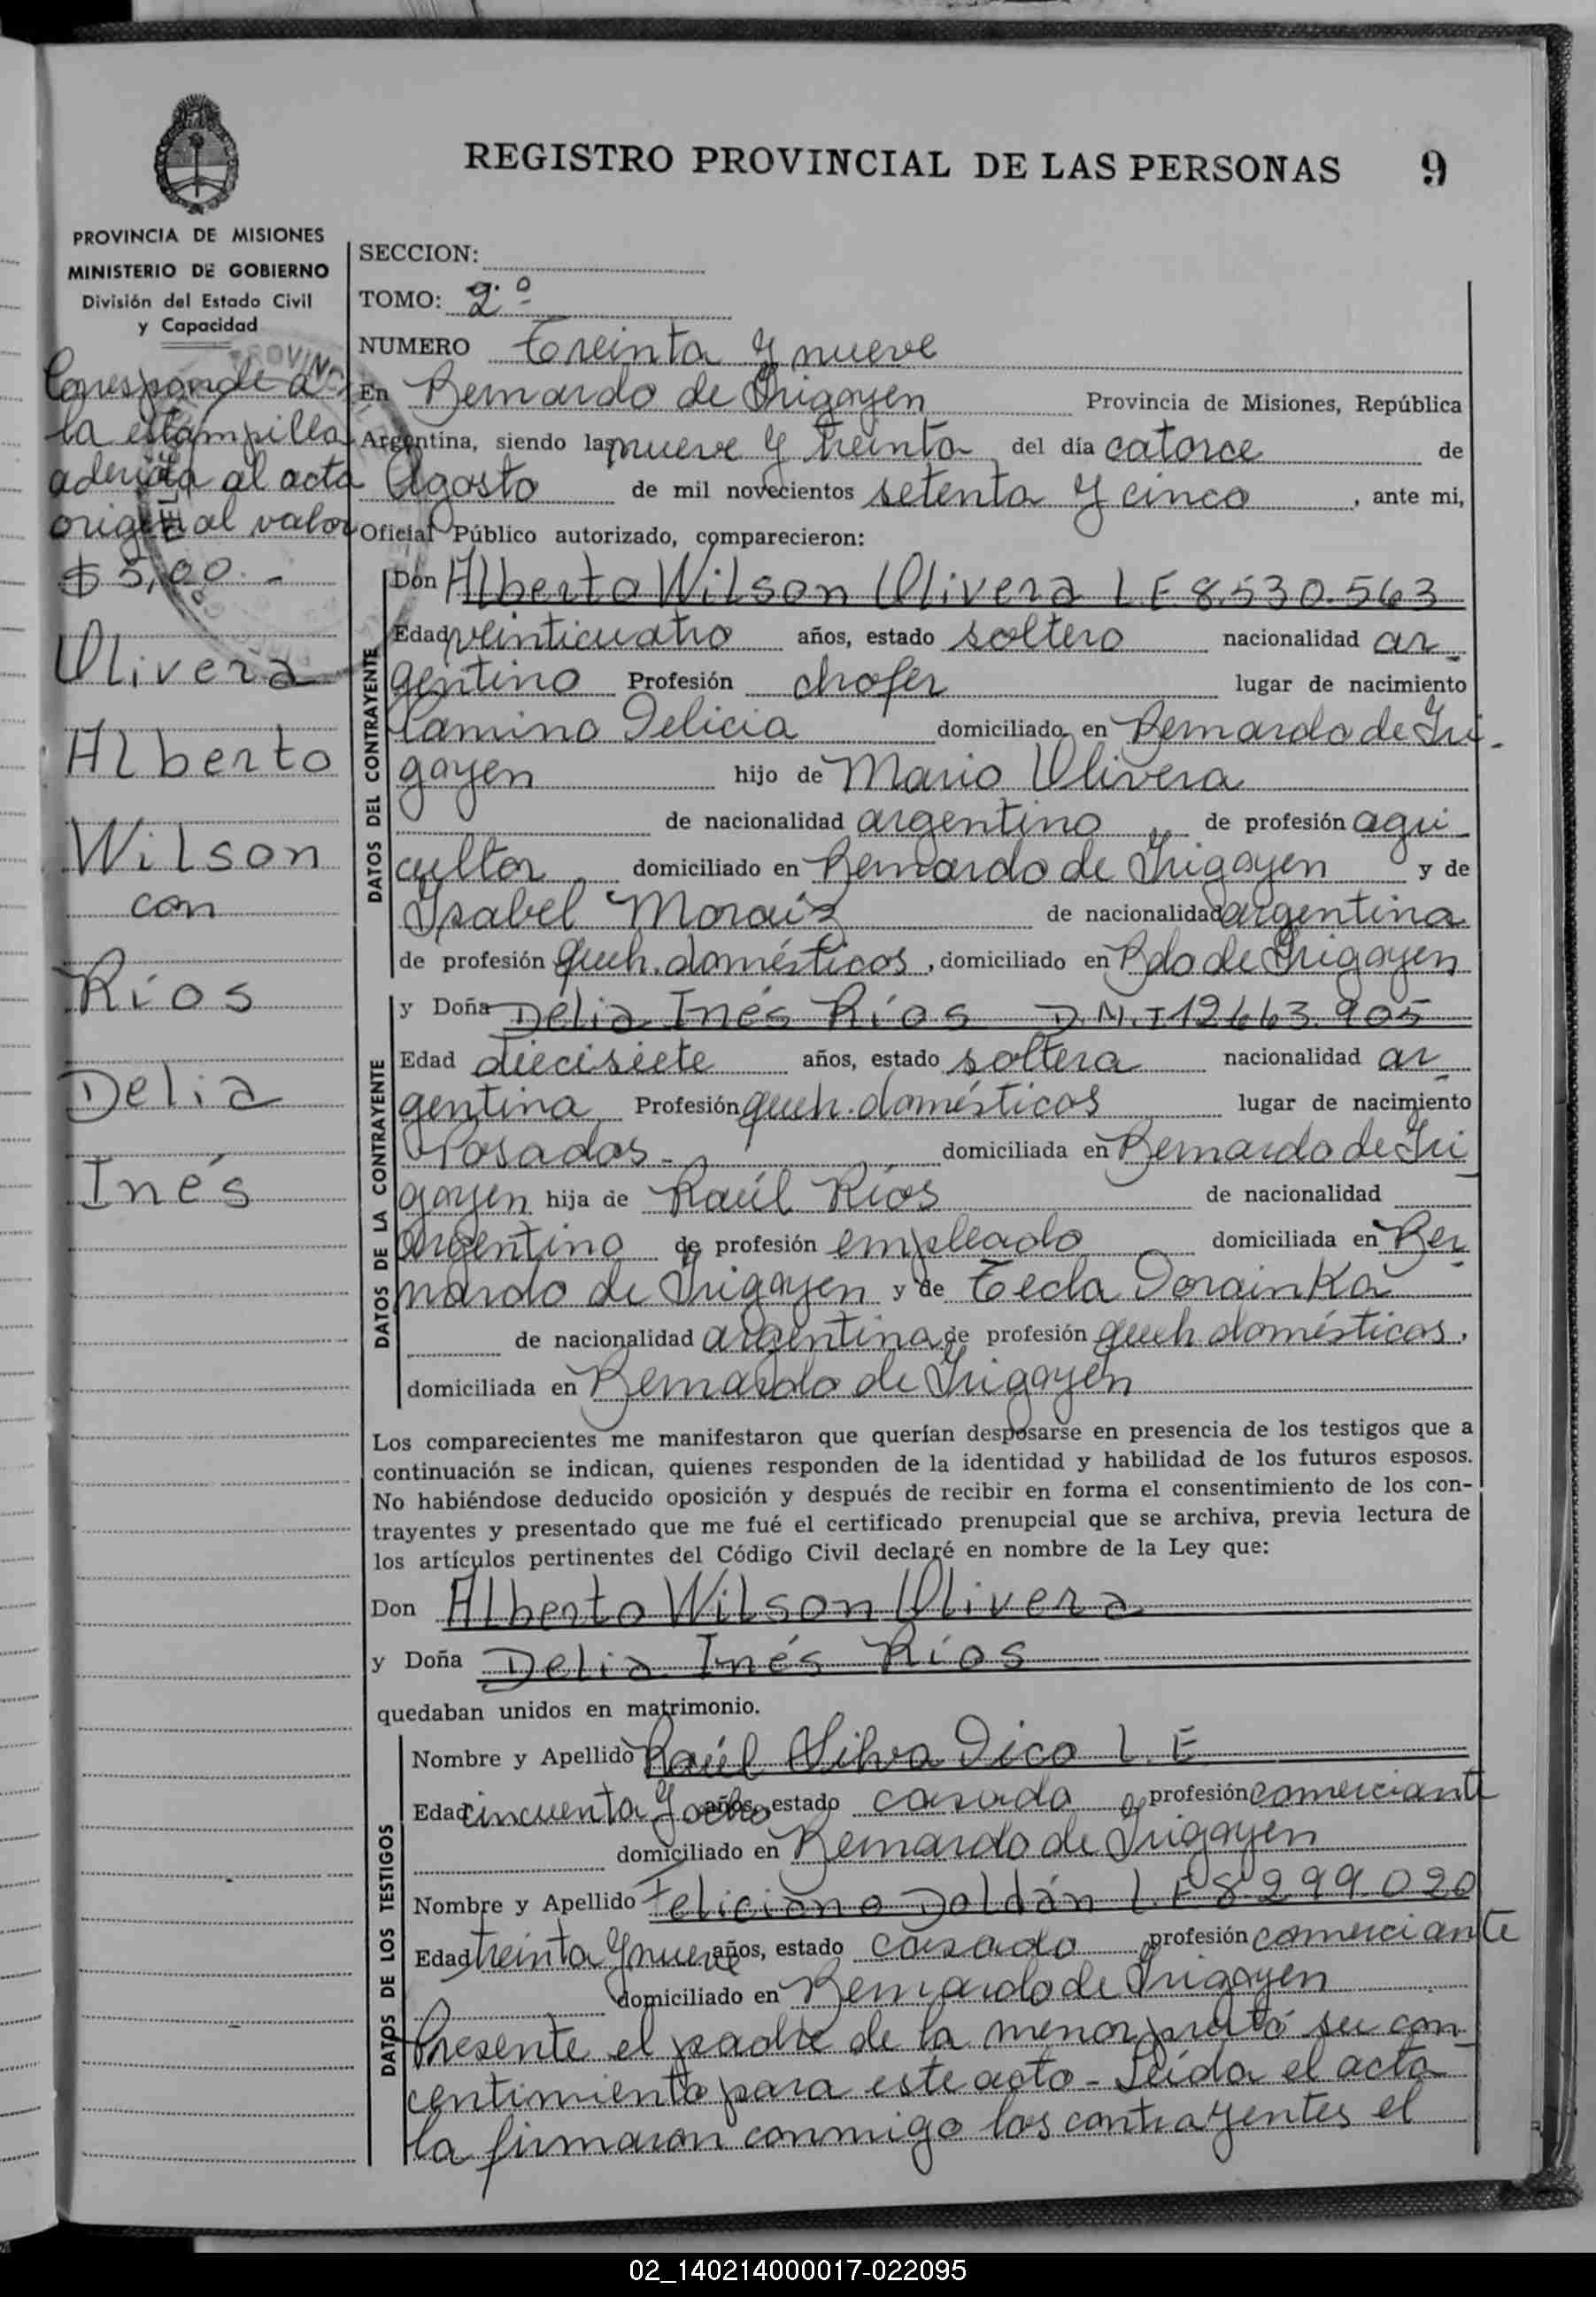 REGISTRO PROVINCIAL DE LAS PERSONAS 9
PROVINCIA DE MISIONES
MINISTERIO DE GOBIERNO
División del Estado Civil
y Capacidad
Corresponde a
la estampilla
aderida al acta
original valor
$ 5,00.-
Olivera
Alberto
Wilson
con
Ríos
Delia
Inés
SECCION:
TOMO: 2º
NUMERO Treinta y nueve
En Bernardo de Irigoyen Provincia de Misiones, República
Argentina, siendo las nueve y treinta del día catorce de
Agosto de mil novecientos setenta y cinco, ante mi,
Oficial Público autorizado, comparecieron:
DATOS DEL CONTRAYENTE
Don Alberto Wilson Olivera L E 8.530.563
Edad veinticuatro años, estado soltero nacionalidad ar-
gentino Profesión chofer lugar de nacimiento
Camino Delicia domiciliado en Bernardo de Iri-
goyen hijo de Mario Olivera
de nacionalidad argentino de profesión agri
cultor domiciliado en Bernardo de Irigoyen y de
Isabel Moraiz de nacionalidad argentina
de profesión queh. domésticos, domiciliado en Bdo de Irigoyen
DATOS DE LA CONTRAYENTE
y Doña Delia Inés Ríos D.N.I 12663.905
Edad diecisiete años, estado soltera nacionalidad ar-
gentina Profesión queh. domésticos lugar de nacimiento
Posadas- domiciliada en Bernardo de Iri
goyen hija de Raúl Ríos de nacionalidad
argentino de profesión empleado domiciliada en Ber-
nardo de Irigoyen y de Tecla Dorainka
de nacionalidad argentina de profesión queh domésticos,
domiciliada en Bernardo de Irigoyen
Los comparecientes me manifestaron que querían desposarse en presencia de los testigos que a
continuación se indican, quienes responden de la identidad y habilidad de los futuros esposos.
No habiéndose deducido oposición y después de recibir en forma el consentimiento de los con-
trayentes y presentado que me fué el certificado prenupcial que se archiva, previa lectura de
los artículos pertinentes del Código Civil declaré en nombre de la Ley que:
Don Alberto Wilson Olivera
y Doña Delia Inés Ríos
quedaban unidos en matrimonio.
DATOS DE LOS TESTIGOS
Nombre y Apellido Raúl Silva Dico L. E
Edad cincuenta y ocho años, estado casado profesión comerciante
domiciliado en Bernardo de Irigoyen
Nombre y Apellido Feliciano Doldán L. E 8299.020
Edad treinta y nueve años, estado casado profesión comerciante
domiciliado en Bernardo de Irigoyen
Presente el padre de la menor prestó su con-
centimiento para este acto- Leída el acta
la firmaron conmigo los contrayentes el
02_140214000017-022095